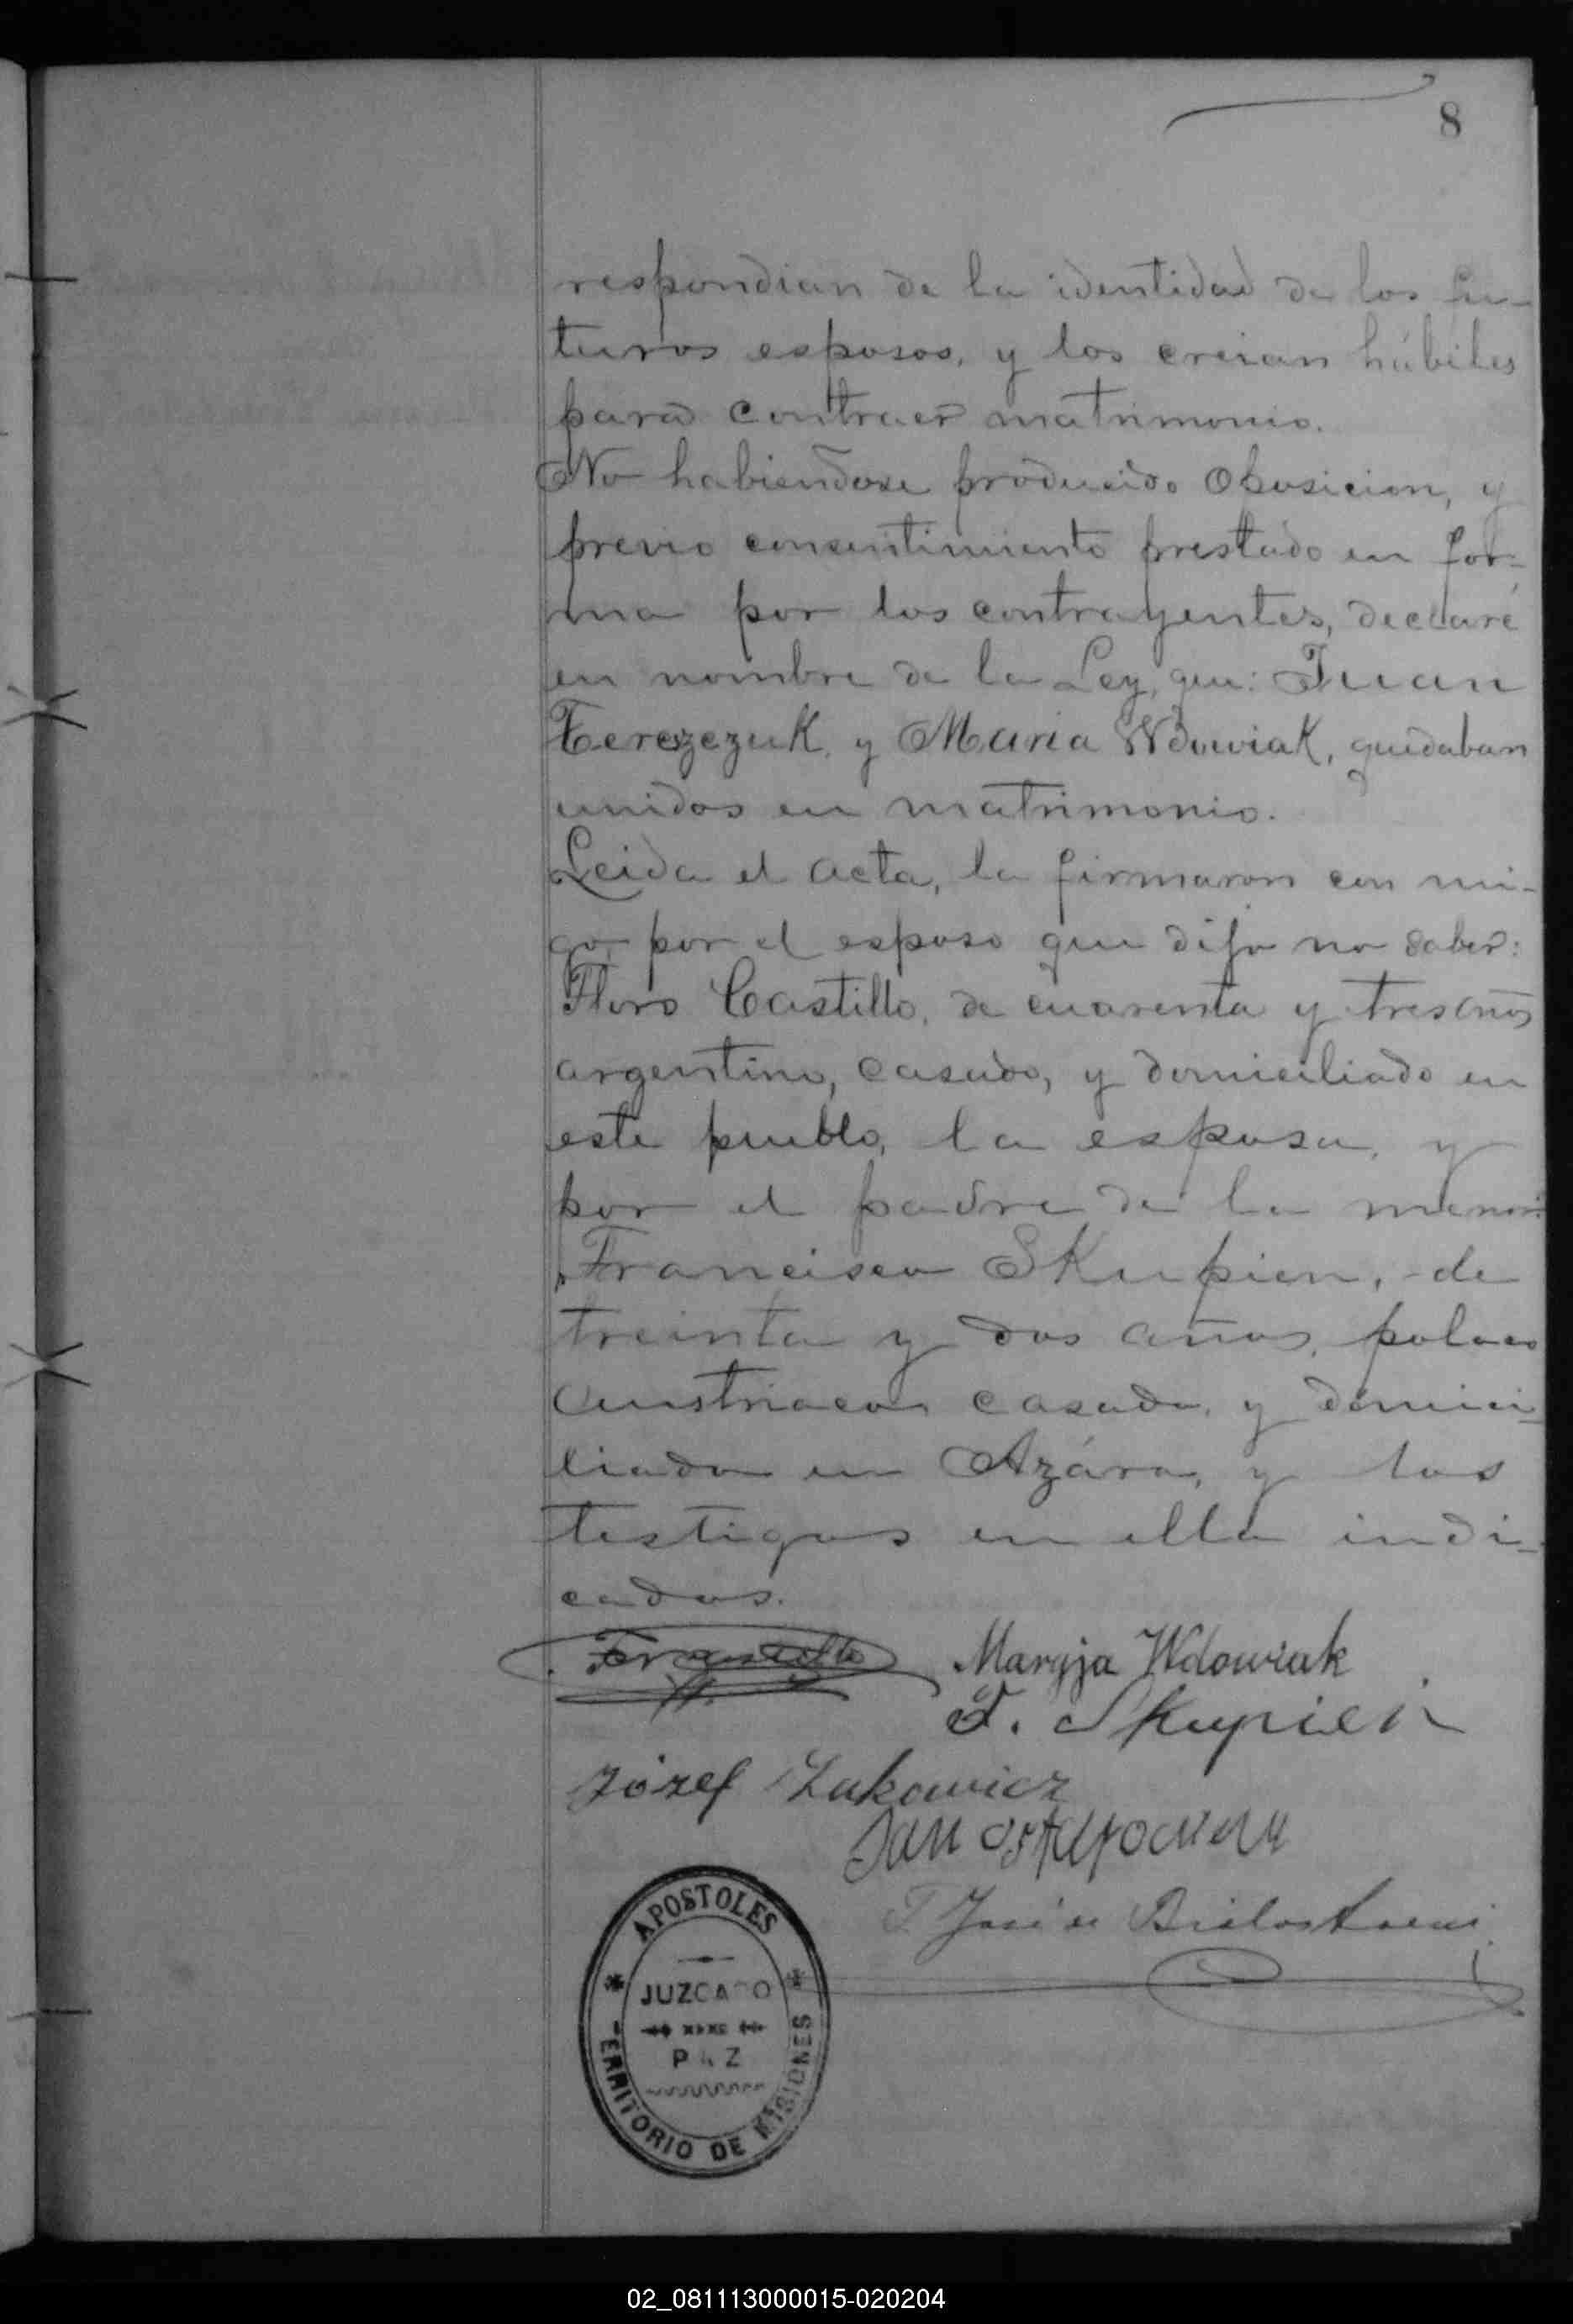 8
respondian de la identidad de los fu-
turos esposos, y los creian hábiles
para contraer matrimonio.
No habiendose producido oposicion, y
previo consentimiento prestado en for-
ma por los contrayentes, declaré
en nombre de la Ley, que: Juan
Terezezuk, y Maria Wdowiak, quedaban
unidos en matrimonio.
Leida el acta, la firmaron con mi-
go, por el esposo que dijo no saber:
Floro Castillo, de cuarenta y tres años
argentino, casado, y domiciliado en
este pueblo, la esposa, y
por el padre de la menor:
Francisco Skupien, de
treinta y dos años, polaco
austriaco, casado, y domici-
liado en Azára, y los
testigos en ella indi-
cados.
Maryja Wdowiak
F. Skupień
Józef Żukowicz
Jan
José Bialostocki
APOSTOLES
JUZGADO
PAZ
TERRITORIO DE MISIONES
02_081113000015-020204